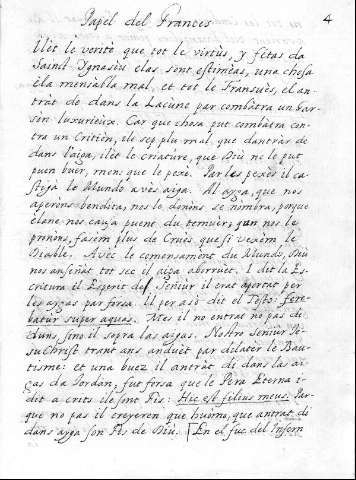 Papel del Frances
4
Ilèt le verité que tot le virtùs, y fetas da
Sainct Ignasiù elas sont estimèas, una chosa
ela mensiabla mal, et tot le Fransuès, el an-
tràt de dans la Lacune par combàtra un Gar-
sòn luxurieux. Car que chosa put combàtra con-
tra un Critièn, els sep plu mal, que dantràr de
dans l'aiga, ilèt le criature, que Diù ne le put
puen buir, mons que le pexè. Par les pexès il ca-
stega le Mundo avès aiga. Al ayga, que nos
aperèns bendita, nos le donèns se nombra, porque
elane nos cauza puent du temuèr, quan nos le
prinons, fasèm plus de Crues que si vexèm le
Diable. Avèc le comensamènt du Mundo, Diù
nos anseñat tot sec el aiga abirruet. I dit la Es-
critura il Esprit del Señiùr il erat aportat per
les aygas par forsa. Il per asò dit el Testo: fere-
batur super aquas. Mes il no entrat no pas di
duns, sino il sopra las aygas. Nostro Seniùr Je-
su Christ trant ans anduèt par dilatèr le Bau-
tisme: et una buez il antràt di dans las ai-
gas da Jordàn, fut forsa que le Pera Eterna i-
dit a crits ele sont Fis: Hic est filius meus. Par-
que no pas il creyeren que huòmo, que antrat di
dans ayga son Fis de Diù. En el fuc del Infern